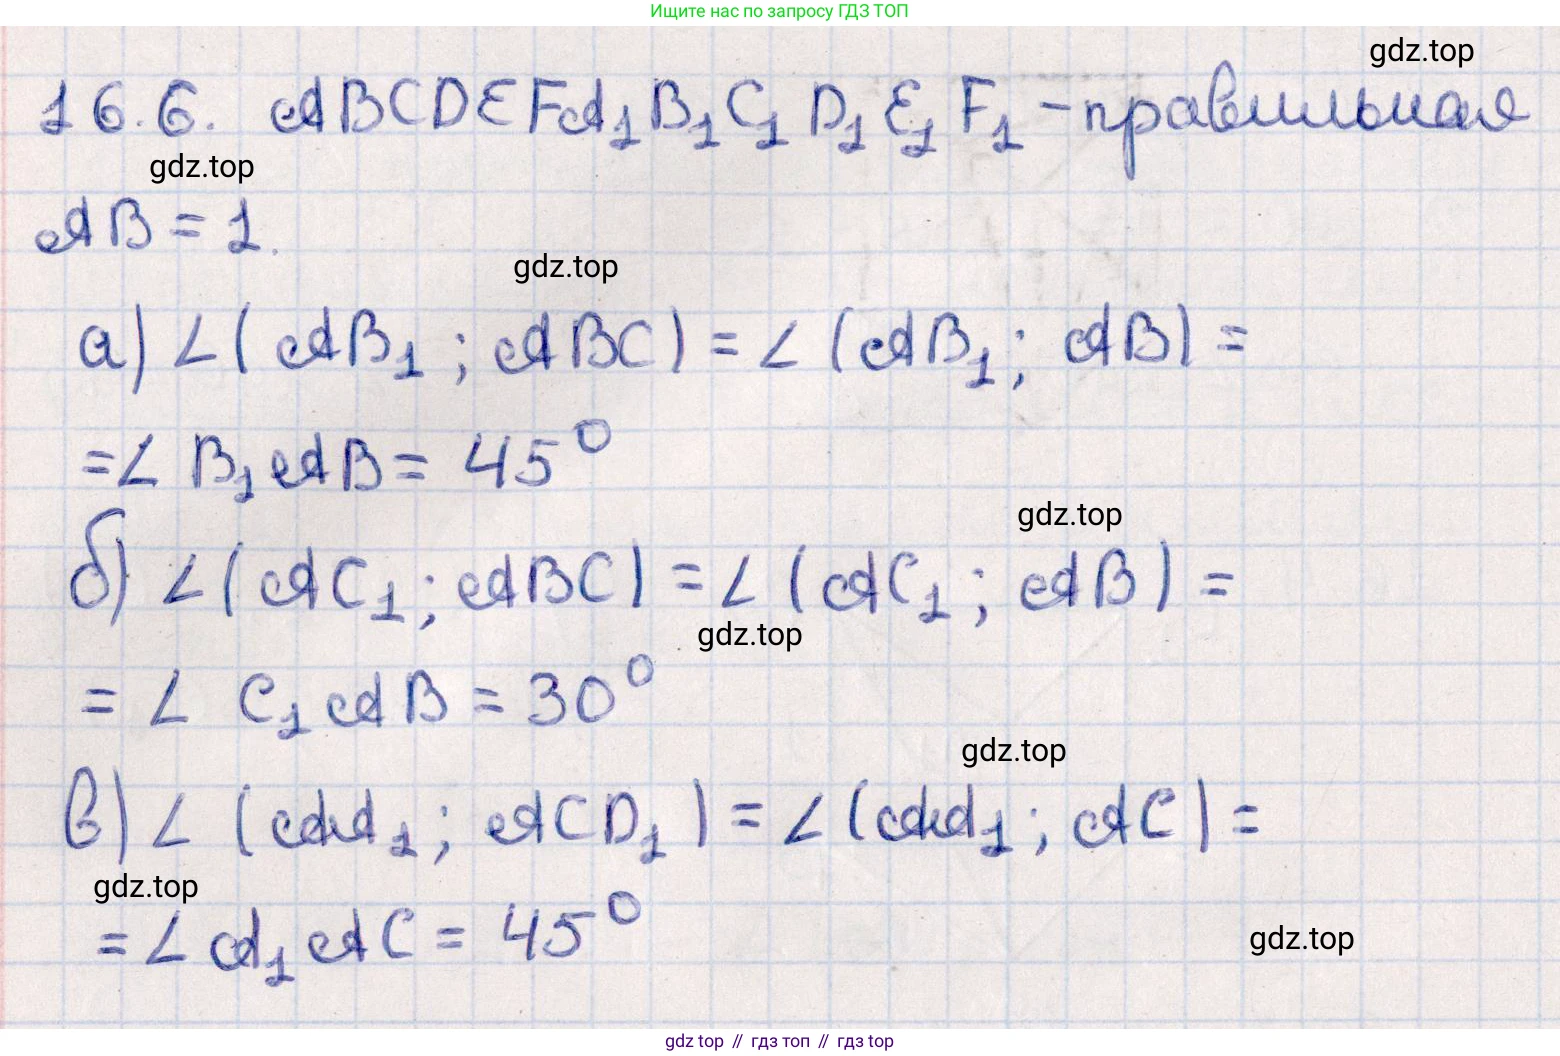 Ищите нас по запросу ГДЗ ТОП
gdz.top
16.6. ABCDEFA₁B₁C₁D₁E₁F₁ - правильная
gdz.top
AB = 1.
gdz.top
а) ∠(AB₁; ABC) = ∠(AB₁; AB) =
= ∠ B₁AB = 45°
gdz.top
б) ∠(AC₁; ABC) = ∠(AC₁; AB) =
gdz.top
= ∠ C₁AB = 30°
gdz.top
в) ∠(AA₁; ACD₁) = ∠(AA₁; AC) =
gdz.top
= ∠A₁AC = 45°
gdz.top
gdz.top // гдз топ // гдз top